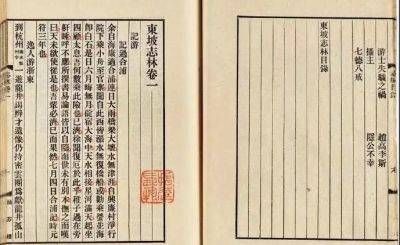 東坡志林目錄
七德八戒 隱公不幸
攝主
游士失職之禍 趙高李斯
東坡志林卷一
記游
記過合浦
余自海康適合浦連日大雨橋梁大壞水無津涯自興廉村淨行
院下乘小舟至官寨聞自此西皆漲水無復橋船或勸乘蜑並海
即白石是日六月晦無月碇宿大海中天水相接星河滿天起坐
四顧太息吾何數乘此險也已濟徐聞復厄於此乎稚子過在旁
鼾睡呼不應所撰書易論語皆以自隨而世未有別本撫之而嘆
曰天未欲使從是也吾輩必濟已而果然七月四日合浦記時元
符三年也
逸人游浙東
到杭州一游龍井謁辨才遺像仍持密雲團為獻龍井孤山